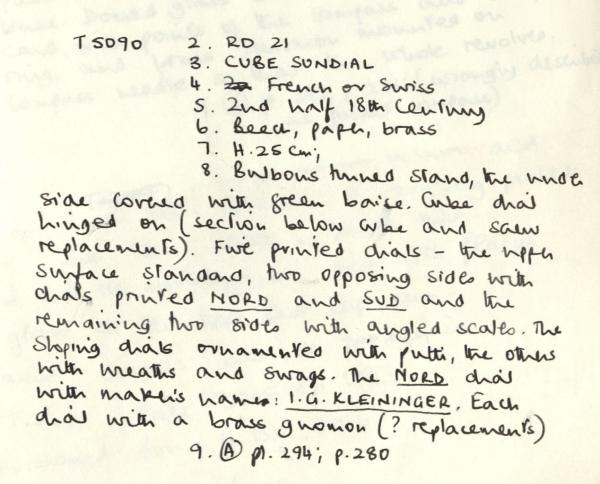 T5090 2. RD 21
3. CUBE SUNDIAL
4. French or Swiss
5. 2nd half 18th Century
6. Beech, paper, brass
7. H. 25 cm;
8. Bulbous turned stand, the under
side covered with green baise. Cube dial
hinged on (section below cube and screw
replacements). Five printed dials - the upper
surface standard, two opposing sides with
dials printed NORD and SUD and the
remaining two sides with angled scales. The
sloping dials ornamented with putti, the others
with wreaths and swags. The NORD dial
with maker's name: I.G. KLEININGER. Each
dial with a brass gnomon (? replacements)
9. (A) pl. 294; p. 280